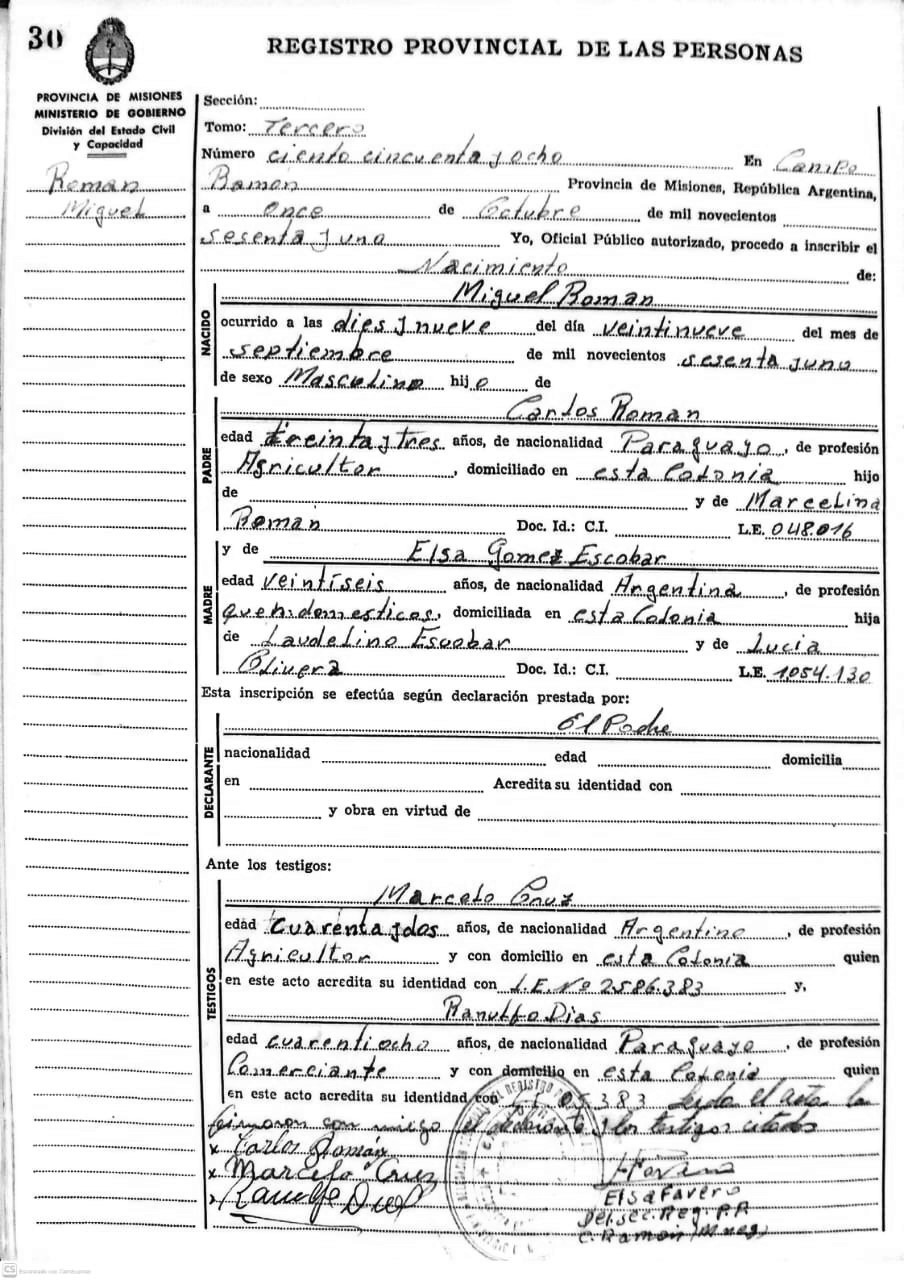 30
REGISTRO PROVINCIAL DE LAS PERSONAS
PROVINCIA DE MISIONES
MINISTERIO DE GOBIERNO
División del Estado Civil
y Capacidad
Roman
Miguel
Sección:
Tomo: Tercero
Número ciento cincuenta y ocho En Campo
Ramon Provincia de Misiones, República Argentina,
a once de Octubre de mil novecientos
sesenta y uno Yo, Oficial Público autorizado, procedo a inscribir el
Nacimiento de:
NACIDO
Miguel Roman
ocurrido a las dies y nueve del día veintinueve del mes de
septiembre de mil novecientos sesenta y uno
de sexo Masculino hijo de
PADRE
Carlos Roman
edad treinta y tres años, de nacionalidad Paraguayo, de profesión
Agricultor, domiciliado en esta Colonia hijo
de y de Marcelina
Roman Doc. Id.: C.I. L.E. 048.016
MADRE
y de Elsa Gomez Escobar
edad veintiseis años, de nacionalidad Argentina, de profesión
queh. domesticos, domiciliada en esta Colonia hija
de Laudelino Escobar y de Lucia
Olivera Doc. Id.: C.I. L.E. 1054.130
Esta inscripción se efectúa según declaración prestada por:
El Padre
DECLARANTE
nacionalidad edad domicilia
en Acredita su identidad con
y obra en virtud de
Ante los testigos:
TESTIGOS
Marcelo Cruz
edad cuarenta y dos años, de nacionalidad Argentino, de profesión
Agricultor y con domicilio en esta Colonia quien
en este acto acredita su identidad con L.E. Nº 2586.383 y,
Ranulfo Dias
edad cuarentiocho años, de nacionalidad Paraguayo, de profesión
Comerciante y con domicilio en esta Colonia quien
en este acto acredita su identidad con 05383 Leyda el acta la
firmaron con migo el declarante y los testigos citados
x Carlos Román
x Marcelo Cruz
x
Elsa Favero
Del. sec. Reg. P.P.
C. Ramón (Mnes)
CS Escaneado con CamScanner